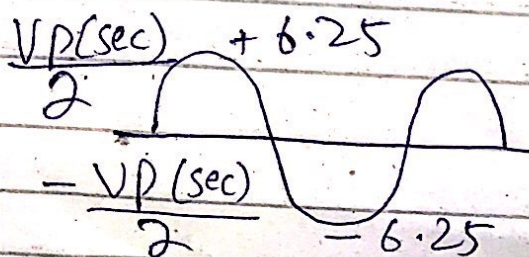 VP(sec) + 6.25
2
- VP (sec)
2 - 6.25